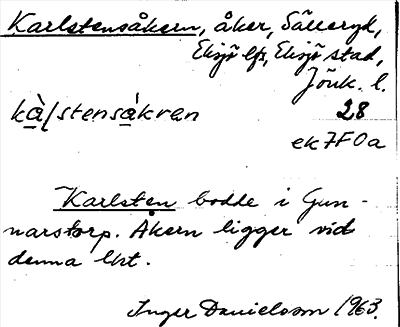 Karlstensåkern, åker, Sälleryd,
Eksjö lfs, Eksjö stad,
Jönk. l.
kàɭstensåkran 28
ek7F0a
Karlsten bodde i Gun-
narstorp. Åkern ligger vid
denna lht.
Inger Danielsson 1963.